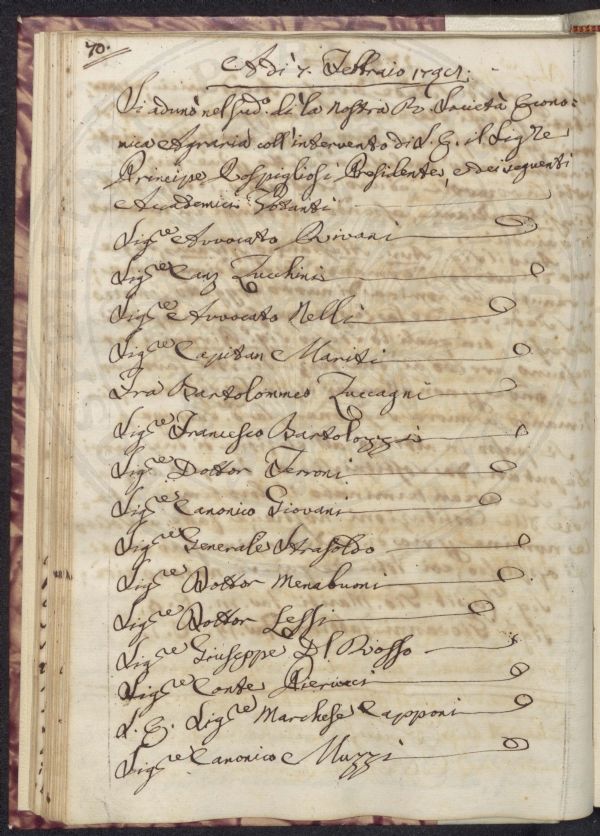 70.
Adì 7. Febbraio 1791.
Si adunò nel sud.º dì la nostra R. Società Econo=
mica Agraria coll'intervento di S. E. il Sig.re
Principe Rospigliosi Presidente, e dei seguenti
Accademici Votanti
Sig.re Avvocato Rivani
Sig.re Canz Zucchini
Sig.re Avvocato Nelli
Sig.re Capitan Mariti
Fra Bartolommeo Zuccagni
Sig.re Francesco Bartolozzi
Sig.re Dottor Ferroni
Sig.re Canonico Giovani
Sig.re Generale Strasoldo
Sig.re Dottor Menabuoni
Sig.re Dottor Lessi
Sig.re Giuseppe Dl Rosso
Sig.re Conte Pierucci
S. E. Sig.re Marchese Capponi
Sig.re Canonico Muzzi